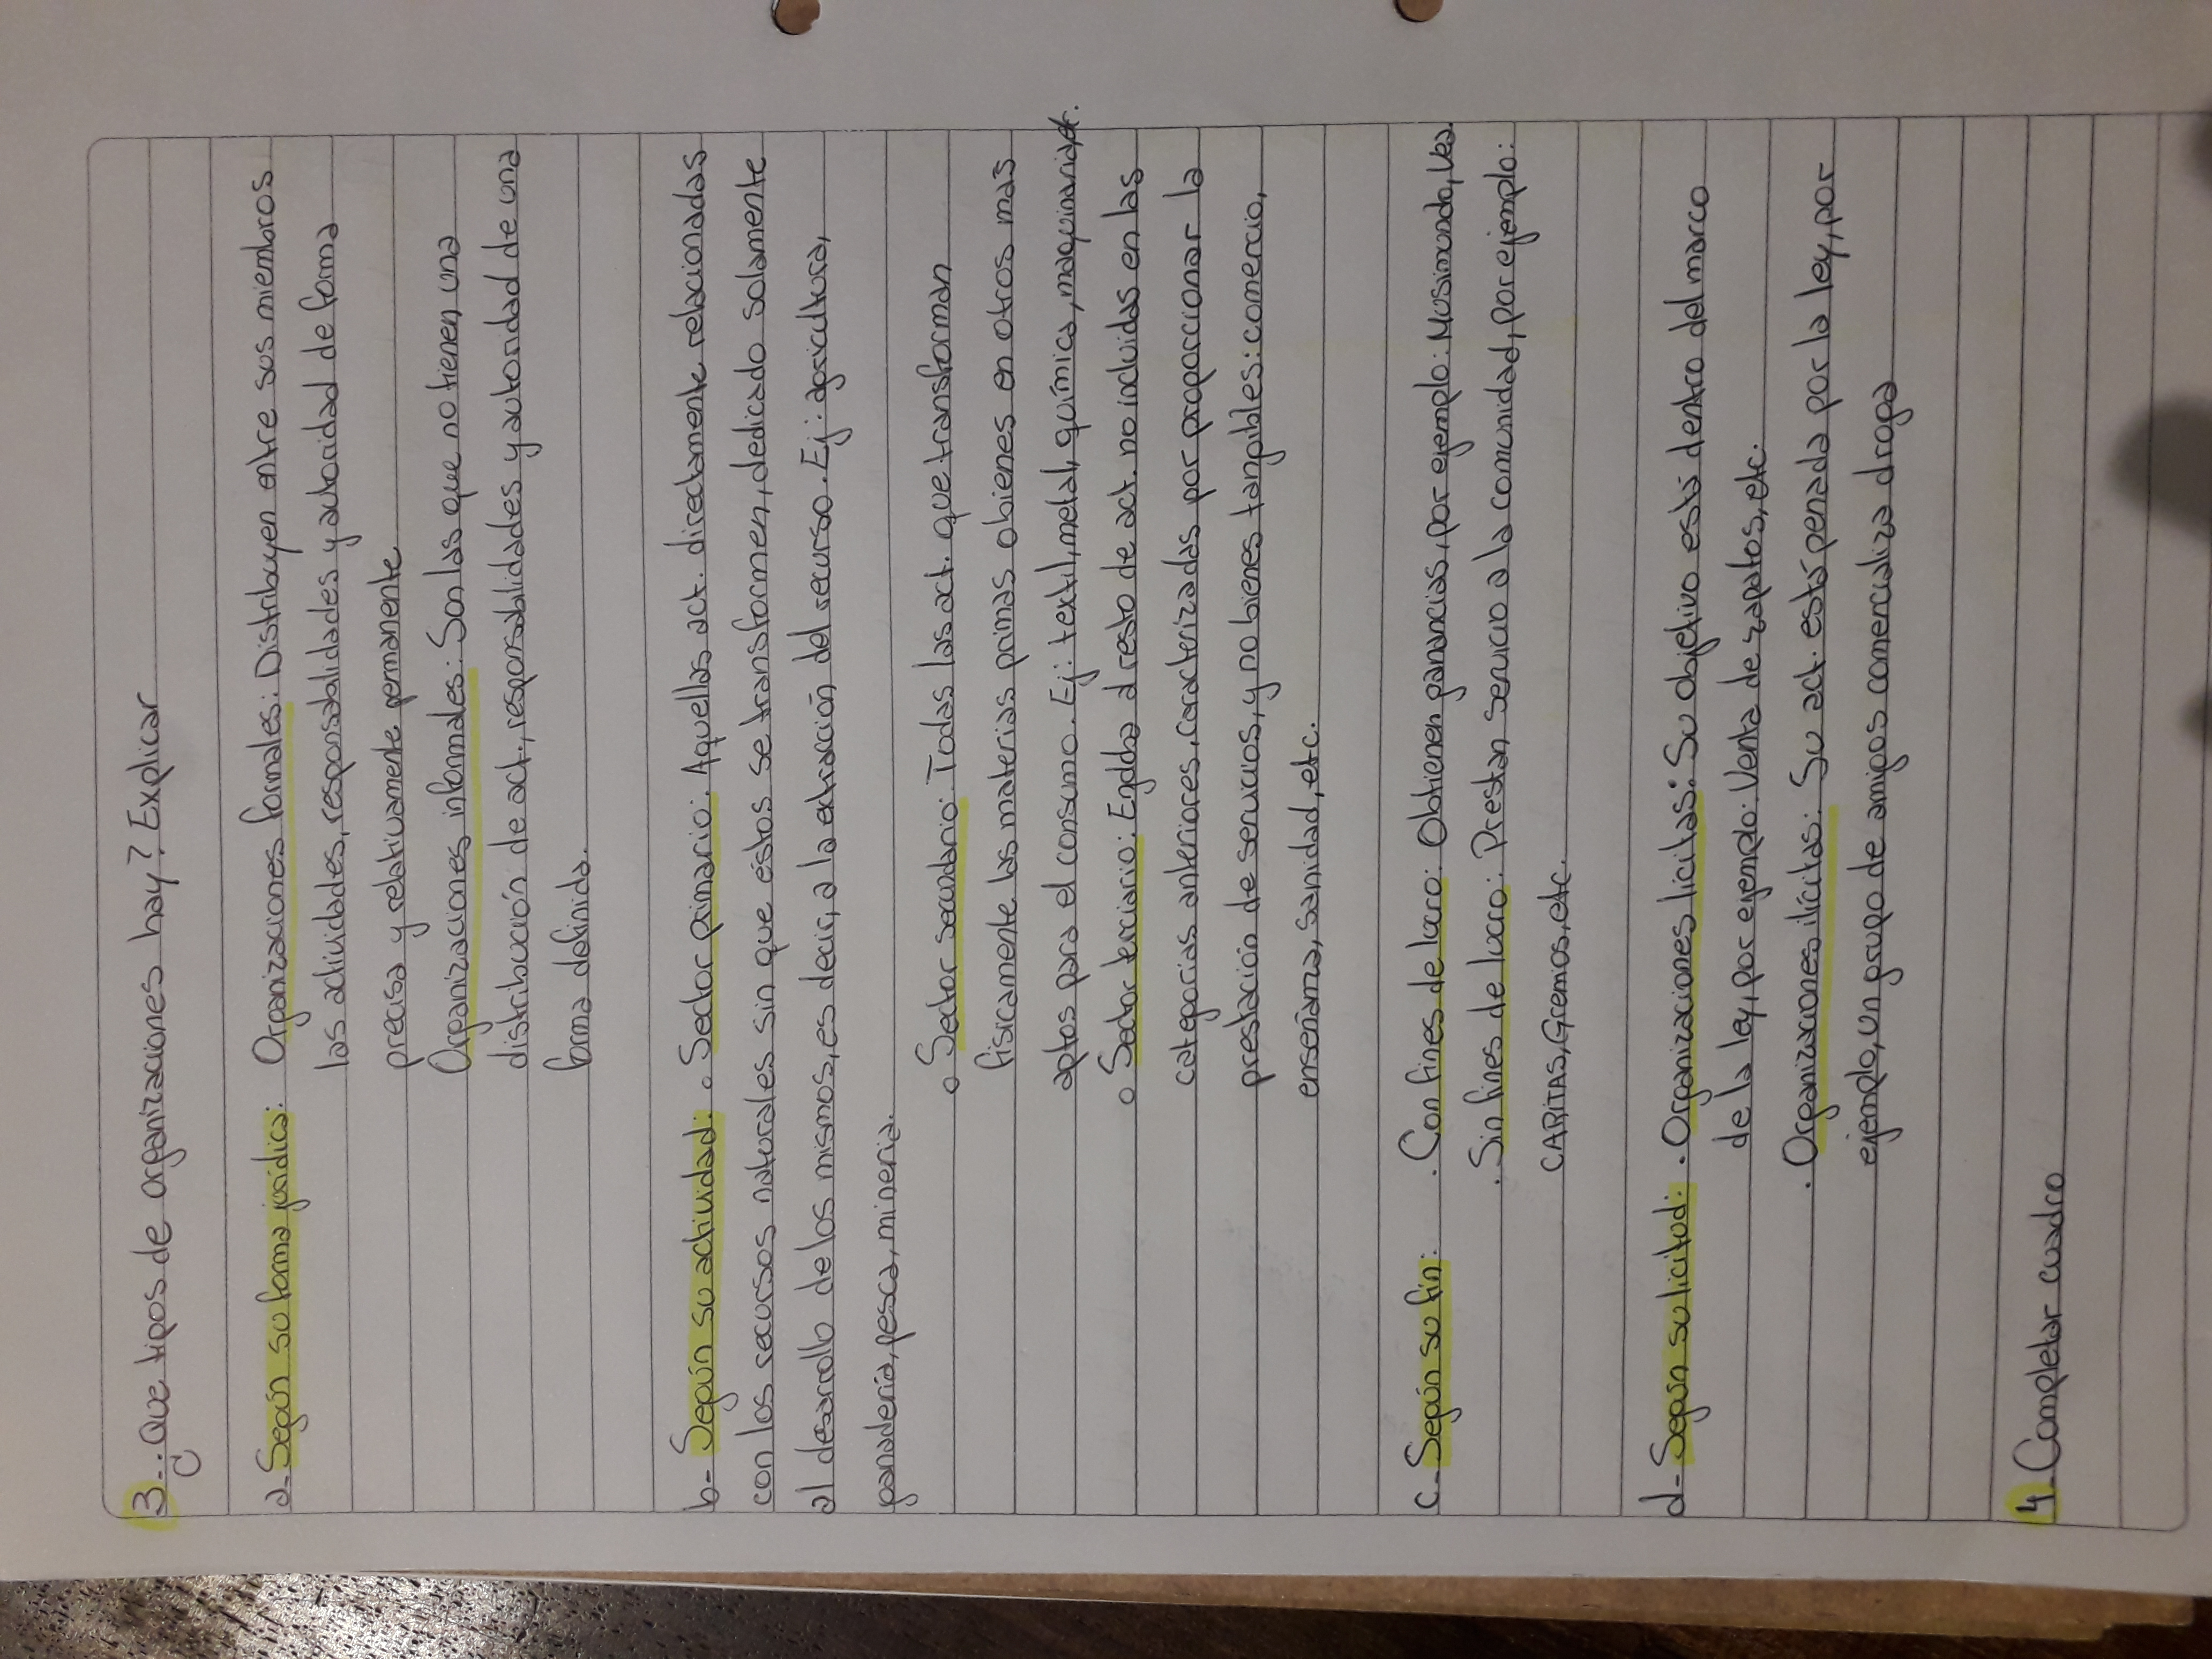 3-. ¿Que tipos de organizaciones hay? Explicar
a- Según su forma jurídica: Organizaciones formales: Distribuyen entre sus miembros
las actividades, responsabilidades y autoridad de forma
precisa y relativamente permanente
Organizaciones informales: Son las que no tienen una
distribución de act., responsabilidades y autoridad de una
forma definida.
b- Según su actividad: o Sector primario: Aquellas act. directamente relacionadas
con los recursos naturales sin que éstos se transformen, dedicado solamente
al desarrollo de los mismos, es decir, a la extracción del recurso. Ej: agricultura,
ganadería, pesca, minería.
o Sector secundario: Todas las act. que transforman
físicamente las materias primas o bienes en otros mas
aptos para el consumo. Ej: textil, metal, química, maquinaria
o Sector terciario: Engloba al resto de act. no incluidas en las
categorías anteriores, caracterizadas por proporcionar la
prestación de servicios, y no bienes tangibles: comercio,
enseñanza, sanidad, etc.
c- Según su fin: . Con fines de lucro: Obtienen ganancias, por ejemplo: Musimundo, Vea.
. Sin fines de lucro: Prestan servicio a la comunidad, por ejemplo:
CARITAS, Gremios, etc.
d- Según su licitud: . Organizaciones licitas: Su objetivo está dentro del marco
de la ley, por ejemplo: Venta de zapatos, etc.
. Organizaciones ilícitas: Su act. está penada por la ley, por
ejemplo, un grupo de amigos comercializa droga
4- Completar cuadro